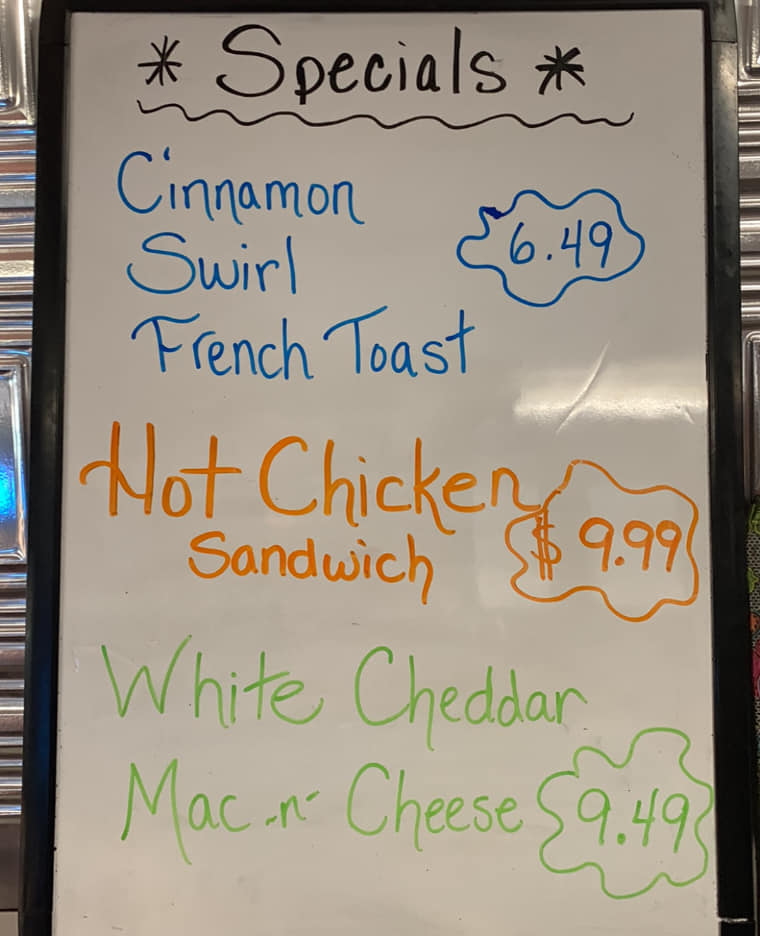 * Specials *
Cinnamon
Swirl
6.49
French Toast
Hot Chicken
Sandwich
$ 9.99
White Cheddar
Mac -n- Cheese 9.49